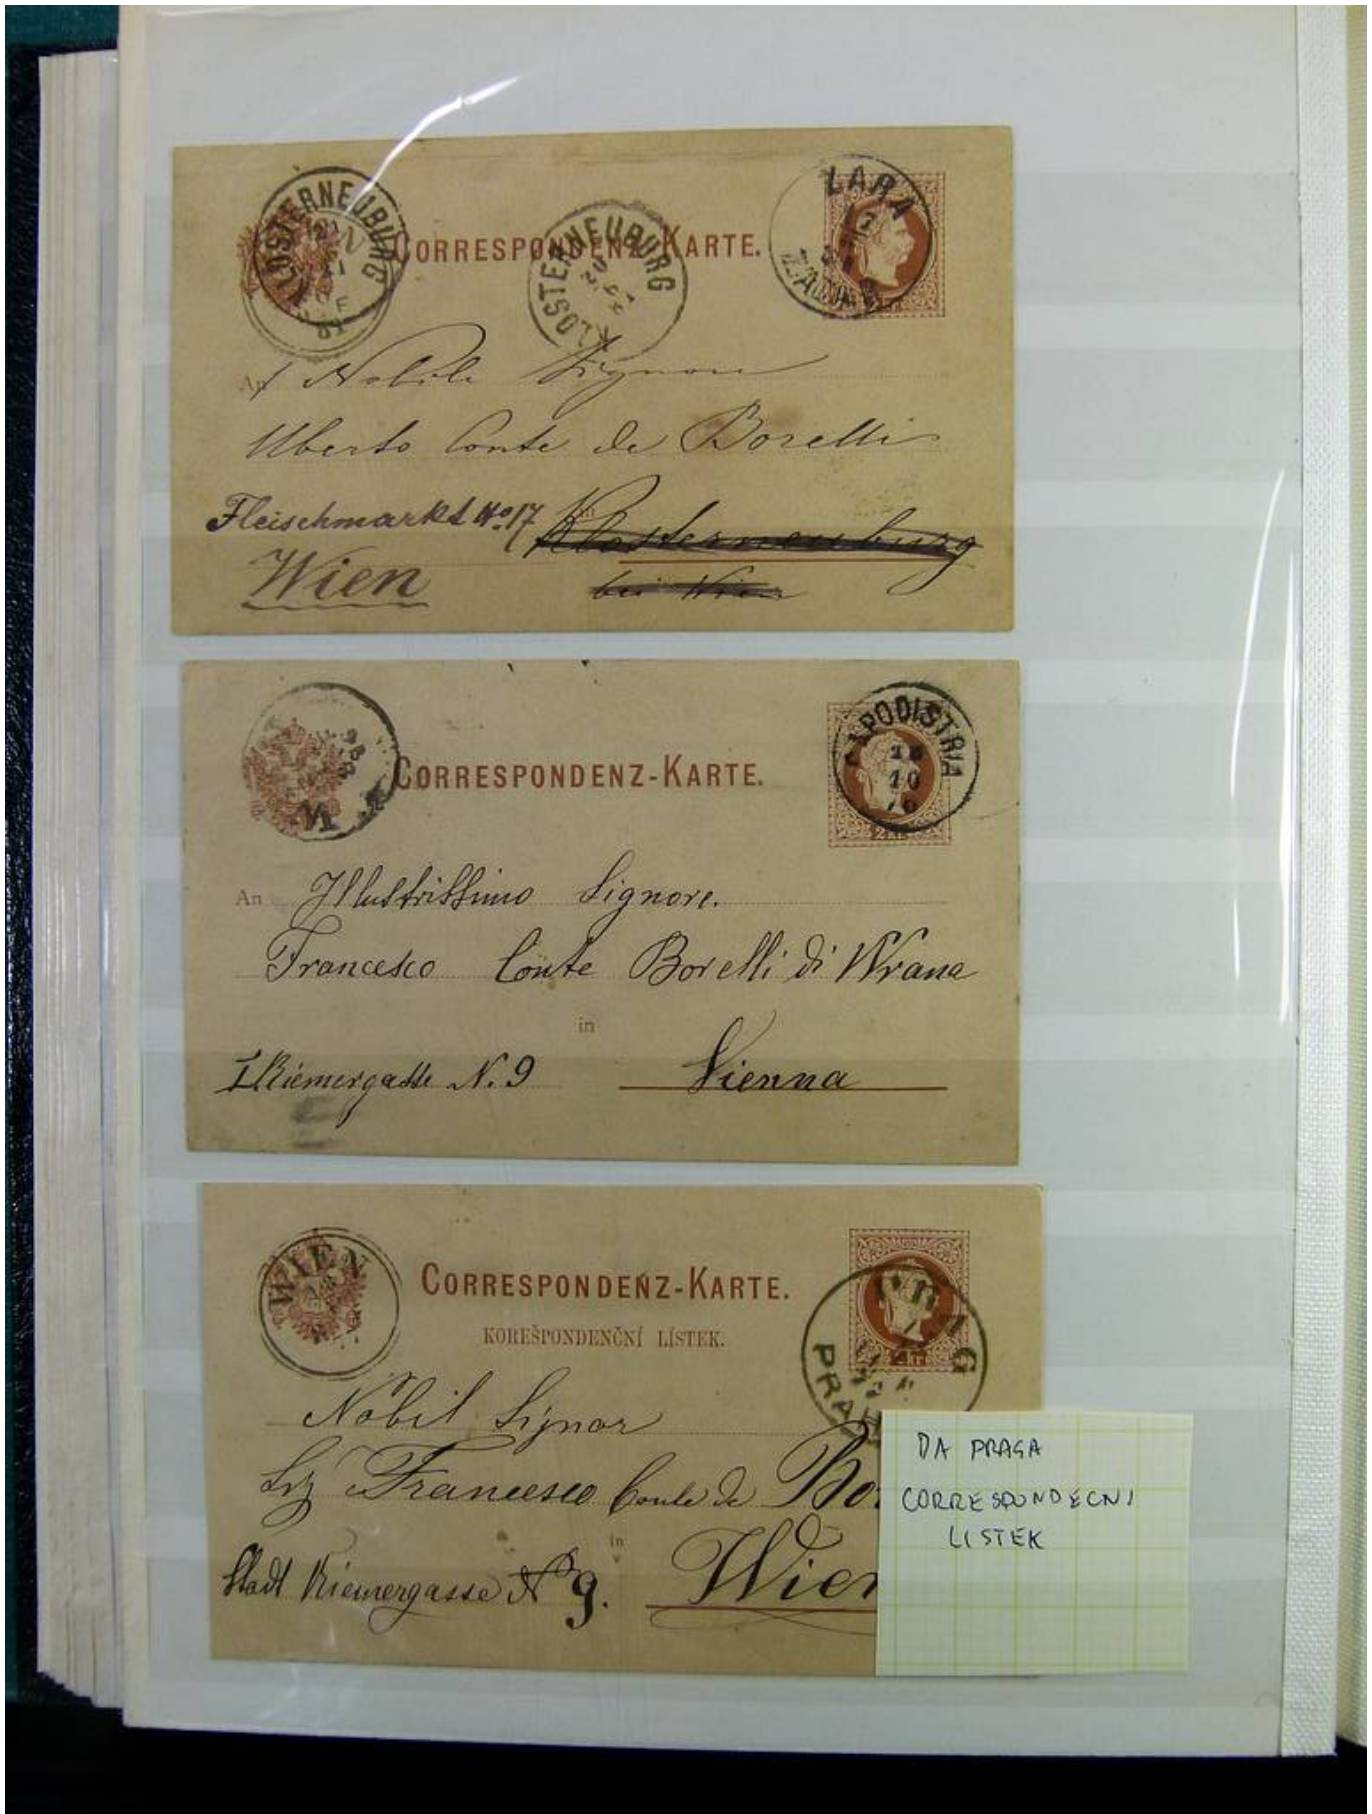 KLOSTERNEUBURG
CORRESPONDENZ-KARTE.
KLOSTERNEUBURG
ZARA
ZADAR
An Nobile Signore
Uberto Conte de Borelli
Fleischmarkt No 17 in Klosterneuburg
Wien bei Wien
CORRESPONDENZ-KARTE.
CAPODISTRIA
18
10
2 Kr.
An Illustrissimo Signore.
Francesco Conte Borelli di Wrana
in
I Riemergasse N. 9 Vienna
WIEN
CORRESPONDENZ-KARTE.
KOREŠPONDENČNÍ LÍSTEK.
PRAG
PRAH
Nobil Signor
Francesco Conte de Bo
in
Stadt Riemergasse No 9. Wien
DA PRAGA
CORRESPONDECNI
LISTEK